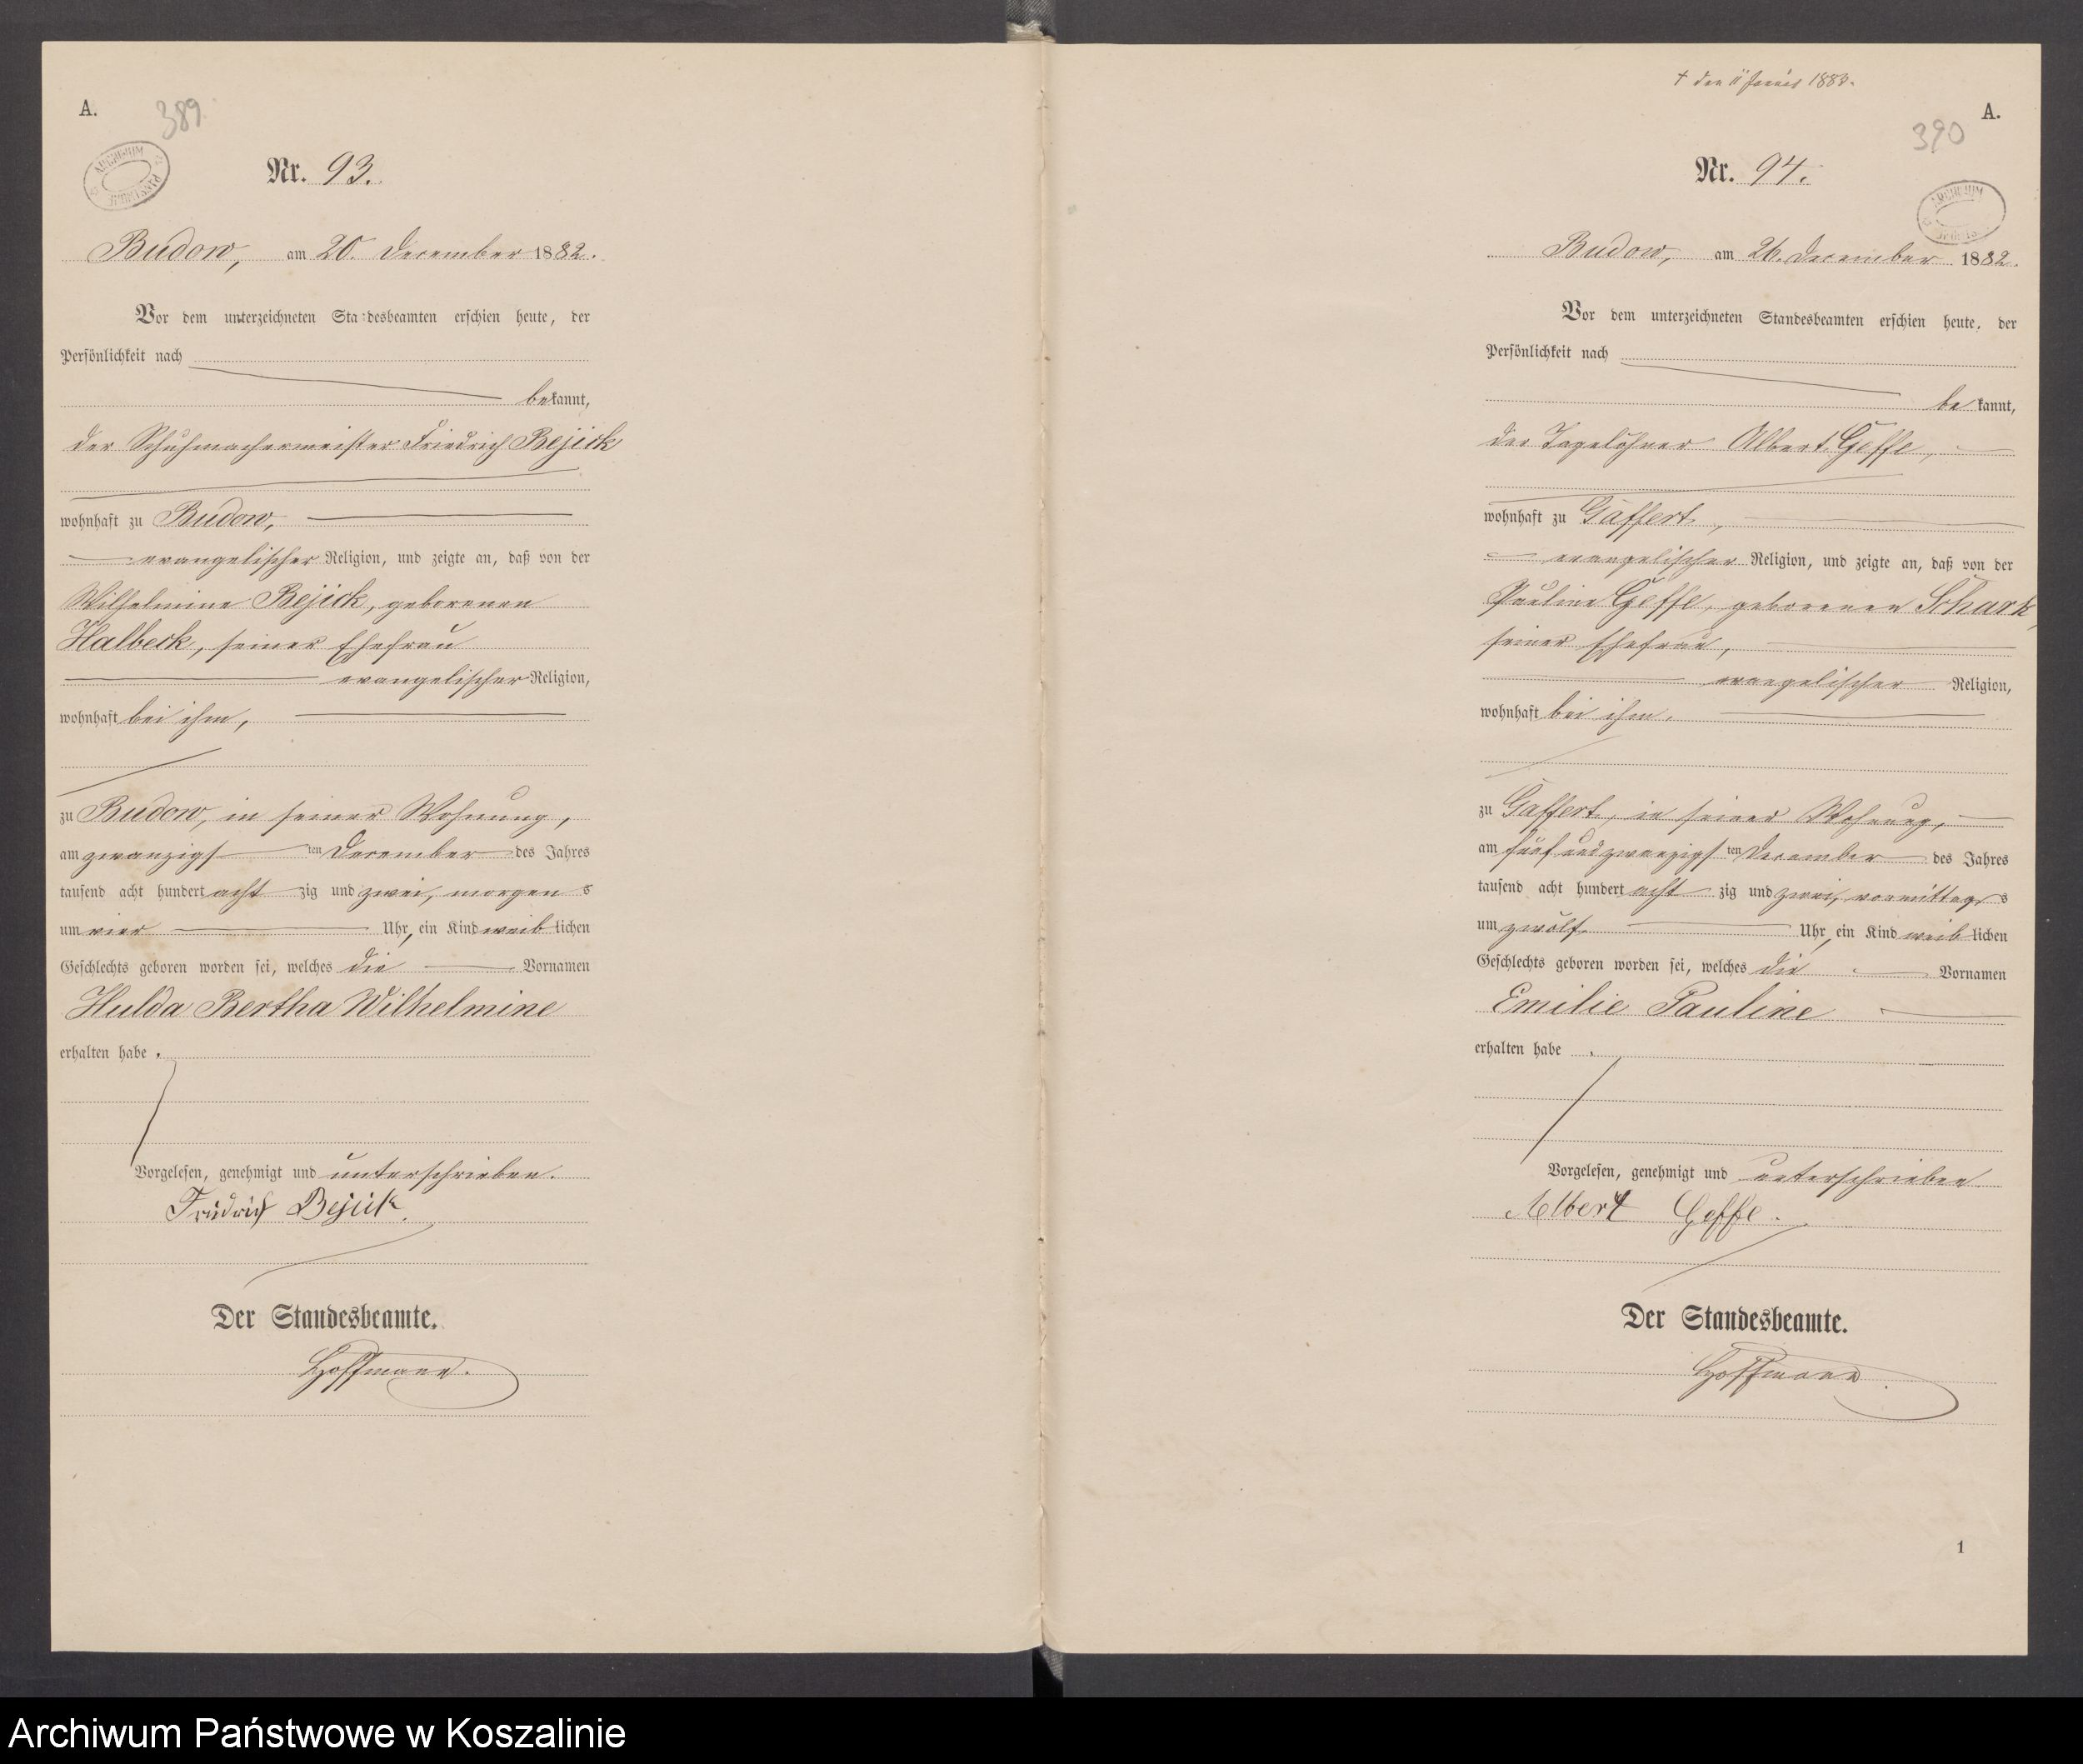 A.
389
Nr. 93.
Budow, am 20. December 1882.
Vor dem unterzeichneten Standesbeamten erschien heute, der
Persönlichkeit nach
bekannt,
der Schuhmachermeister Friedrich Bejick
wohnhaft zu Budow,
evangelischer Religion, und zeigte an, daß von der
Wilhelmine Bejick, geborenen
Halbeck, seiner Ehefrau
evangelischer Religion,
wohnhaft bei ihm,
zu Budow, in seiner Wohnung,
am zwanzigsten December des Jahres
tausend acht hundert achtzig und zwei, morgens
um vier Uhr, ein Kind weiblichen
Geschlechts geboren worden sei, welches die Vornamen
Hulda Bertha Wilhelmine
erhalten habe.
Vorgelesen, genehmigt und unterschrieben.
Friedrich Bejick.
Der Standesbeamte.
Hoffmann.
† den 11 1883.
A.
390
Nr. 94.
Budow, am 26. December 1882.
Vor dem unterzeichneten Standesbeamten erschien heute, der
Persönlichkeit nach
bekannt,
der Tagelöhner Albert Geffe,
wohnhaft zu Gaffert,
evangelischer Religion, und zeigte an, daß von der
Pauline Geffe, geborenen Schark,
seiner Ehefrau,
evangelischer Religion,
wohnhaft bei ihm,
zu Gaffert, in seiner Wohnung,
am fünf und zwanzigsten December des Jahres
tausend acht hundert achtzig und zwei, vormittags
um zwölf Uhr, ein Kind weiblichen
Geschlechts geboren worden sei, welches die Vornamen
Emilie Pauline
erhalten habe.
Vorgelesen, genehmigt und unterschrieben
Albert Geffe.
Der Standesbeamte.
Hoffmann
1
Archiwum Państwowe w Koszalinie